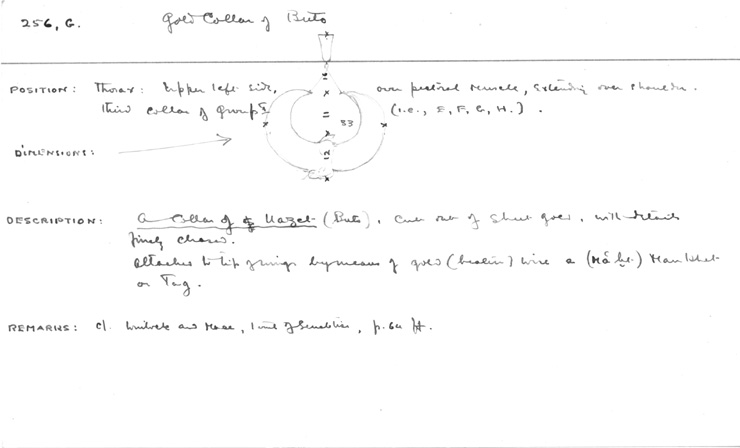 256, G. Gold Collar of Buto
POSITION: Thorax: Upper left side, over pectoral muscle, extending over shoulder.
Third collar of group (i.e., E, F, G, H.).
33
DIMENSIONS:
DESCRIPTION: A Collar of Uazet (Buto), cut out of sheet gold, with details
finely chased.
Attached to tip of wings by means of gold (beaten) wire a Mankhet
or Tag.
REMARKS: cf. Winlock and Mace, Tomb of Senebtisi, p. 64 ff.